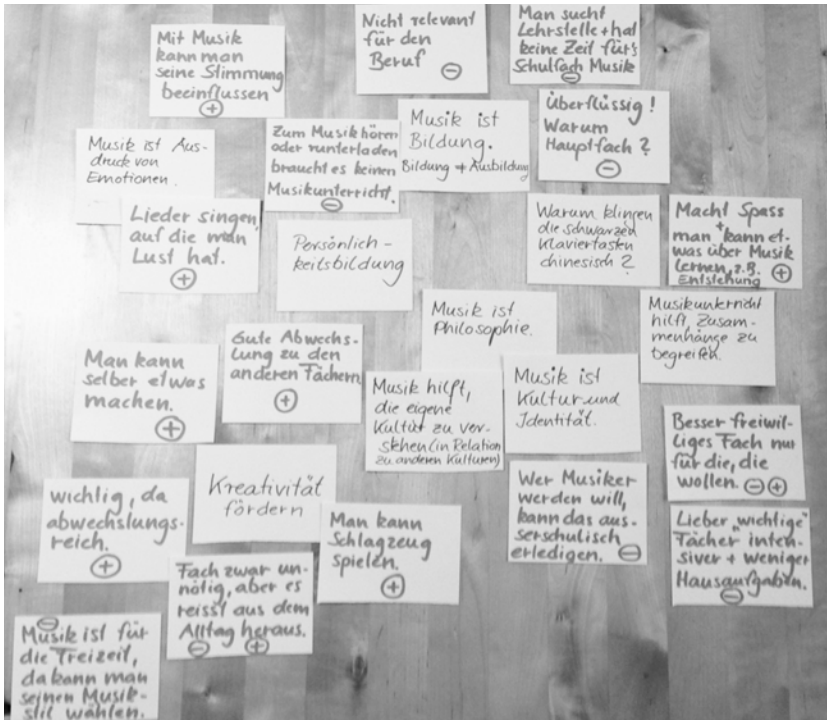 Mit Musik
kann man
seine Stimmung
beeinflussen
+
Nicht relevant
für den
Beruf
-
Man sucht
Lehrstelle + hat
keine Zeit für's
Schulfach Musik
-
Musik ist Aus-
druck von
Emotionen.
Zum Musik hören
oder runterladen
braucht es keinen
Musikunterricht.
-
Musik ist
Bildung.
Bildung + Ausbildung
Überflüssig!
Warum
Hauptfach?
-
Lieder singen,
auf die man
Lust hat.
+
Persönlich-
keitsbildung
Warum klingen
die schwarzen
Klaviertasten
chinesisch?
Macht Spass
+
man kann et-
was über Musik
lernen, z.B.
Entstehung
+
Musik ist
Philosophie.
Musikunterricht
hilft, Zusam-
menhänge zu
begreifen.
Man kann
selber etwas
machen.
+
Gute Abwechs-
lung zu den
anderen Fächern
+
Musik hilft,
die eigene
Kultur zu ver-
stehen (in Relation
zu anderen Kulturen)
Musik ist
Kultur und
Identität.
Besser freiwil-
liges Fach nur
für die, die
wollen. - +
wichtig, da
abwechslungs-
reich.
+
Kreativität
fördern
Man kann
Schlagzeug
spielen.
+
Wer Musiker
werden will,
kann das aus-
serschulisch
erledigen. -
Lieber „wichtige"
Fächer inten-
siver + weniger
Hausaufgaben.
-
Fach zwar un-
nötig, aber es
reisst aus dem
Alltag heraus.
- +
-
Musik ist für
die Freizeit,
da kann man
seinen Musik-
stil wählen.